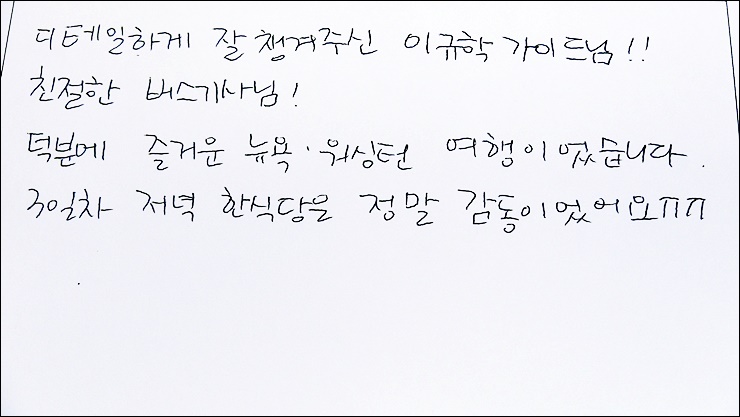 디테일하게 잘 챙겨주신 이규학 가이드님!!
친절한 버스기사님!
덕분에 즐거운 뉴욕·워싱턴 여행이었습니다.
3일차 저녁 한식당은 정말 감동이었어요ㅠㅠ